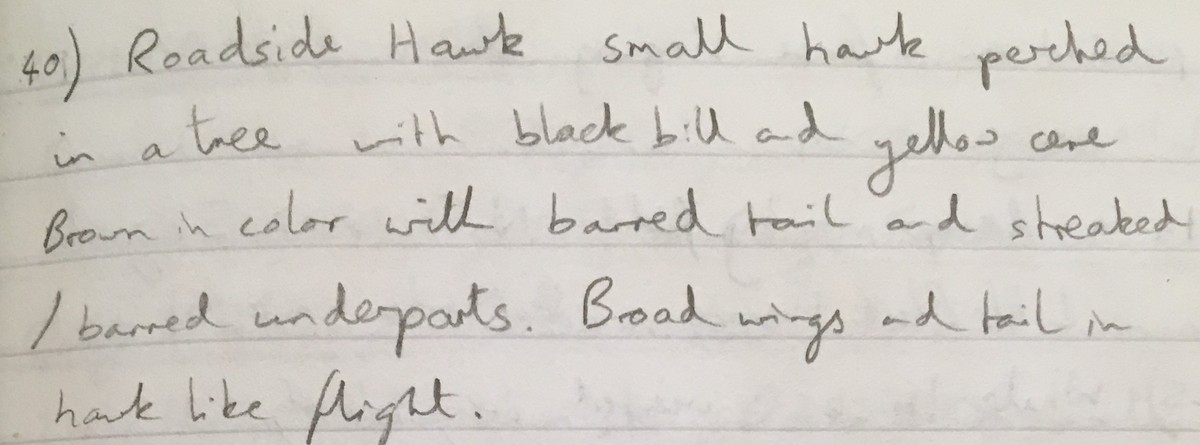 40) Roadside Hawk small hawk perched
in a tree with black bill and yellow cere
Brown in color with barred tail and streaked
/ barred underparts. Broad wings and tail in
hawk like flight.